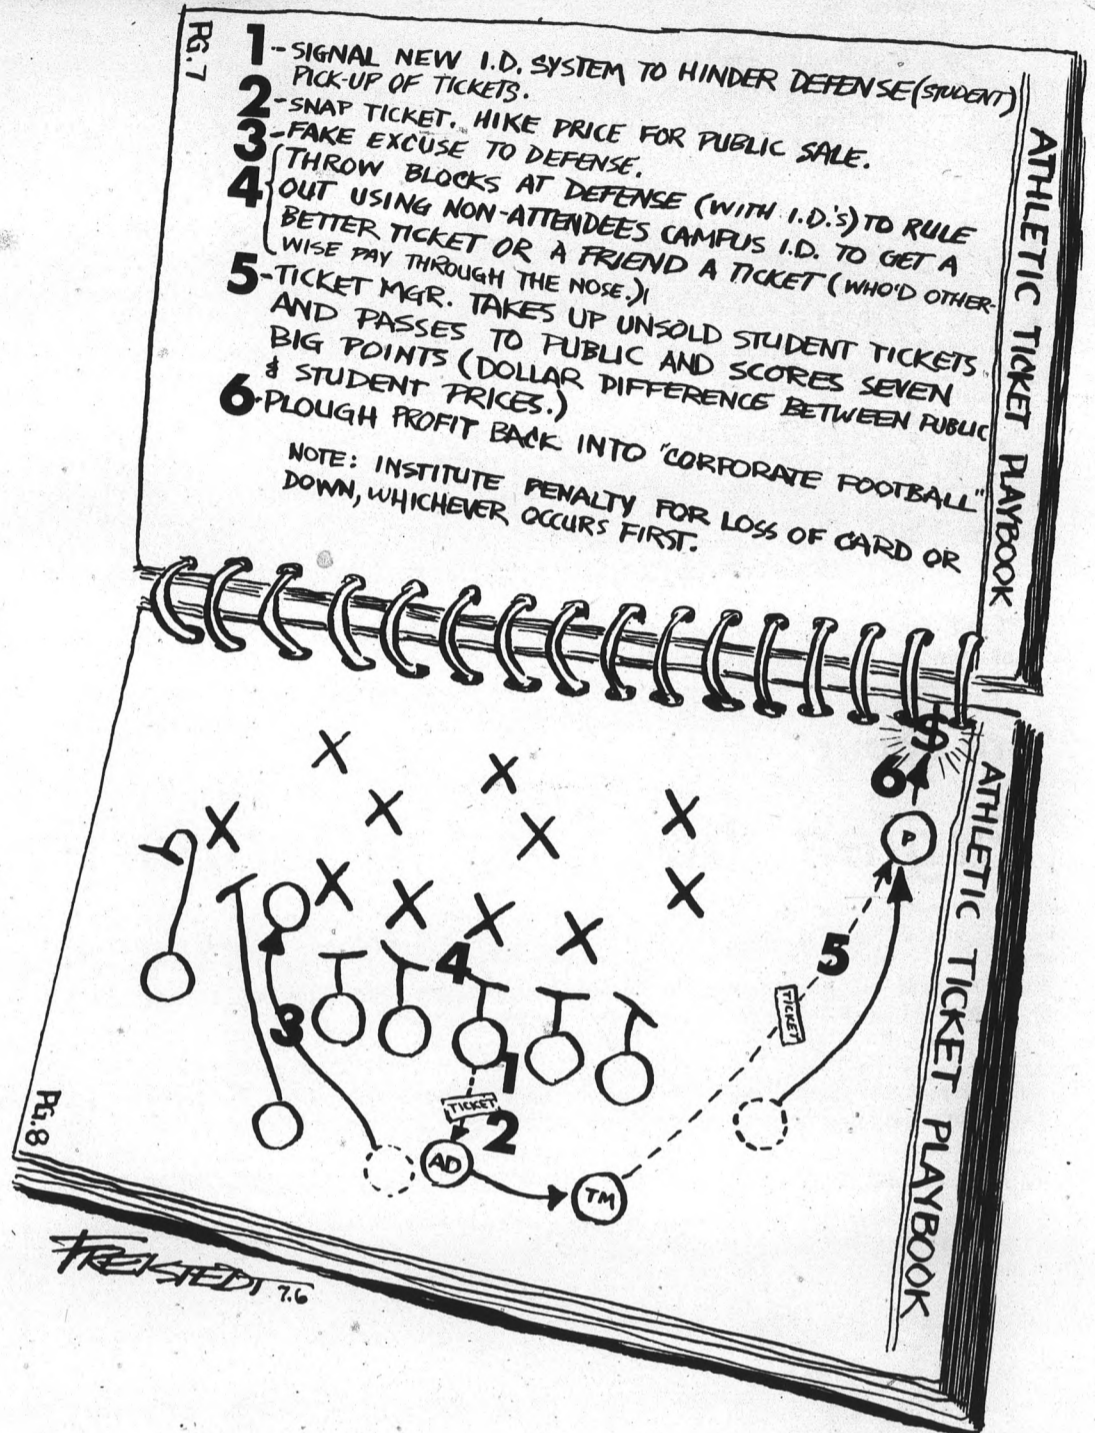 PG.7
1-SIGNAL NEW I.D. SYSTEM TO HINDER DEFENSE (STUDENT)
PICK-UP OF TICKETS.
2-SNAP TICKET. HIKE PRICE FOR PUBLIC SALE.
3-FAKE EXCUSE TO DEFENSE.
4 THROW BLOCKS AT DEFENSE (WITH I.D.'S) TO RULE
OUT USING NON-ATTENDEES CAMPUS I.D. TO GET A
BETTER TICKET OR A FRIEND A TICKET (WHO'D OTHER-
WISE PAY THROUGH THE NOSE.)
5-TICKET MGR. TAKES UP UNSOLD STUDENT TICKETS
AND PASSES TO PUBLIC AND SCORES SEVEN
BIG POINTS (DOLLAR DIFFERENCE BETWEEN PUBLIC
& STUDENT PRICES.)
6-PLOUGH PROFIT BACK INTO "CORPORATE FOOTBALL"
NOTE: INSTITUTE PENALTY FOR LOSS OF CARD OR
DOWN, WHICHEVER OCCURS FIRST.
ATHLETIC TICKET PLAYBOOK
$
6
P
5
TICKET
4
3
1
TICKET
2
AD
TM
ATHLETIC TICKET PLAYBOOK
PG.8
FREISTEDT 7.6